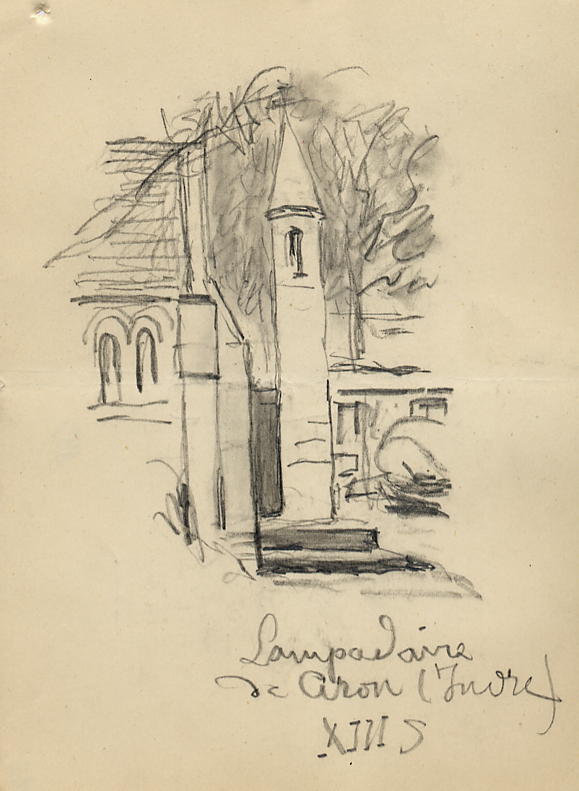 Lampadaire
de Ciron (Indre)
XIII S